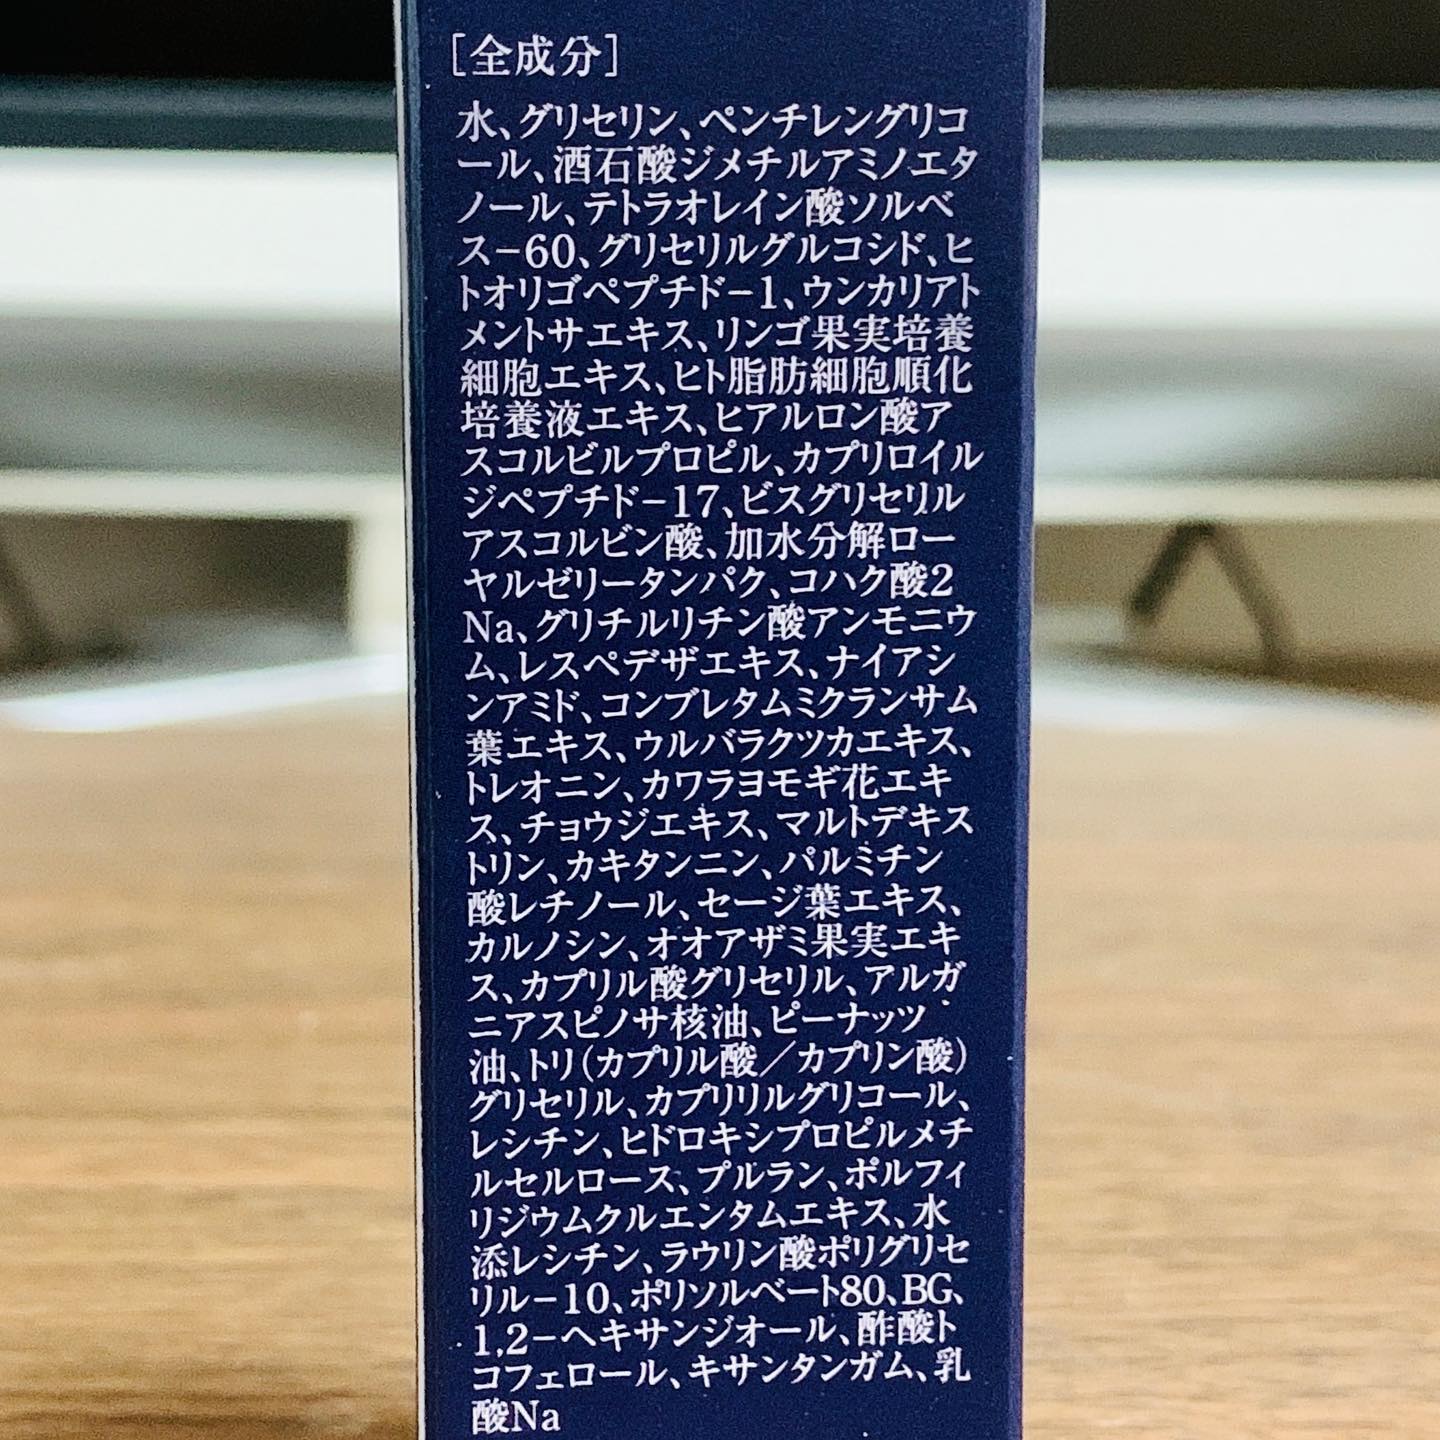 [全成分]
水、グリセリン、ペンチレングリコ
ール、酒石酸ジメチルアミノエタ
ノール、テトラオレイン酸ソルベ
ス−60、グリセリルグルコシド、ヒ
トオリゴペプチド−1、ウンカリアト
メントサエキス、リンゴ果実培養
細胞エキス、ヒト脂肪細胞順化
培養液エキス、ヒアルロン酸ア
スコルビルプロピル、カプリロイル
ジペプチド−17、ビスグリセリル
アスコルビン酸、加水分解ロー
ヤルゼリータンパク、コハク酸2
Na、グリチルリチン酸アンモニウ
ム、レスペデザエキス、ナイアシ
ンアミド、コンブレタムミクランサム
葉エキス、ウルバラクツカエキス、
トレオニン、カワラヨモギ花エキ
ス、チョウジエキス、マルトデキス
トリン、カキタンニン、パルミチン
酸レチノール、セージ葉エキス、
カルノシン、オオアザミ果実エキ
ス、カプリル酸グリセリル、アルガ
ニアスピノサ核油、ピーナッツ
油、トリ(カプリル酸／カプリン酸)
グリセリル、カプリリルグリコール、
レシチン、ヒドロキシプロピルメチ
ルセルロース、プルラン、ポルフィ
リジウムクルエンタムエキス、水
添レシチン、ラウリン酸ポリグリセ
リル−10、ポリソルベート80、BG、
1,2−ヘキサンジオール、酢酸ト
コフェロール、キサンタンガム、乳
酸Na